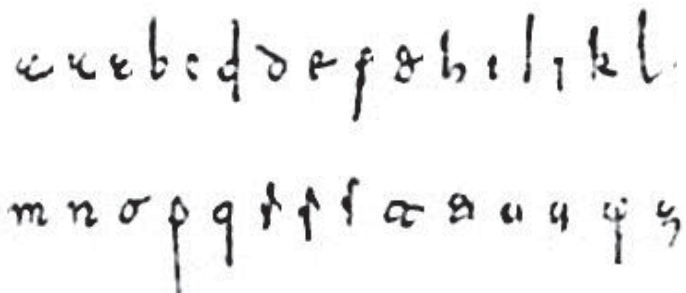 a a a b c d d e f g h i l j k l
m n o p q r r s t t u u y z